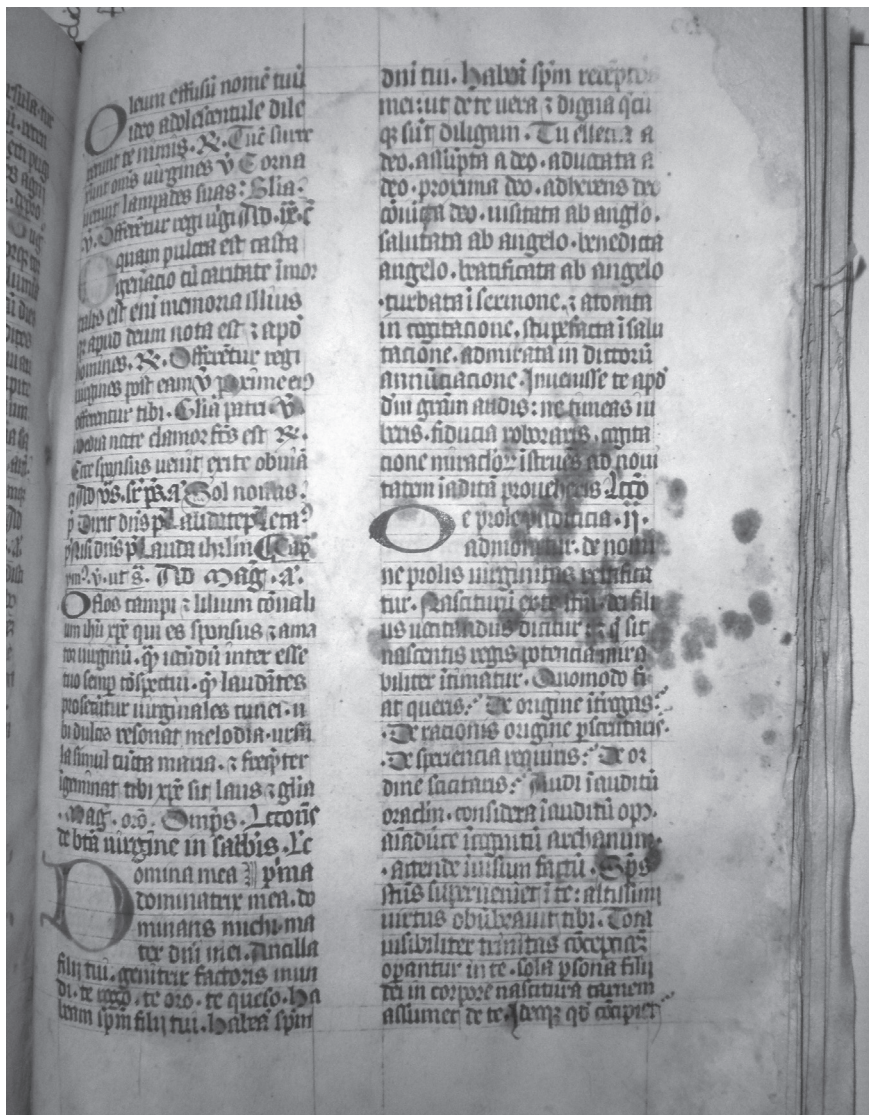 Oleum effusū nomē tuū
ideo adolescentule dile
xerunt te nimis. R. Tūc surre
xerunt oms uirgines v̄ Et orna
uerunt lampades suas: Glia.
v̄. Offerētur regi uīgī Ad
O quam pulcra est casta
generacio cū caritate īmor
talis est enī memoria illius
apud deum nota est ⁊ apd
homines. R. Offerētur regi
uirgines post eam v̄ Prime eiꝰ
offerentur tibi. Glia patri. v̄.
Media nocte clamor fcūs est R.
Ecce sponsus uenit exite obuiā
Ad v̄s. sr ps. a. Sol nouus.
p̄ Dixit dns p̄ Laudate p̄ Leta
p̄ nisi dns p̄ Lauda ihrlm Cap
v. ut s. Ad Mag. a.
O flos campi ⁊ lilium cōuali
um ihū xp̄e qui es sponsus ⁊ ama
tor uirginū. ꝙ iocūdū inter esse
tuo semp cōspectui. ꝙ laudātes
prosecūtur uirginales cunei. u
bi dulcis resonat melodia. ursu
la simul cūcta maria. ⁊
igeminat tibi xp̄e sit laus ⁊ glia
Mag. oro. Omps. Lectōes
de btā uirgine in sabbīs. Lc
Domina mea p̄ma
dominatrix mea. do
minans michi. ma
ter dnī mei. Ancilla
filij tui. genitrix factoris mun
di. te rogo. te oro. te queso. ha
beam spm filij tui. habeā spm
dnī tui. habeā spm
mei: ut de te uera ⁊ digna
sūt diligam. Tu electa a
deo. assūpta a deo. aduocata a
deo. proxima deo. adherens deo
cōiūcta deo. uisitata ab anglo.
salutata ab angelo. benedicta
angelo. beatificata ab angelo
turbata ī sermone. ⁊ atonita
in cogitacione. stupefacta ī salu
tacione. admirata in dictorū
annūciacione. Inuenisse te apd
dm̄ grām audis: ne timeas iu
beris. fiducia roboraris. cogita
cione miraclor īstrues ad noui
tatem īauditā proueheris. Lcco
De prole pudicicia. ij.
admoneatur. de nomi
ne prolis uirginitas certifica
tur. Nasciturū ex te scm̄. dei fili
us uocandus dicitur: ⁊ q̄ sit
nascentis regis potencia mira
biliter ītimatur. Quomodo fi
at queris: De origine īterogas:
De racionis origine pscrutaris.
De speriencia requiris: De or
dine sciscitaris: Audi īauditū
oraclm. considera īauditū opꝰ.
aīaduerte īcognitū archanum.
attende īuisum factū. Sps
scūs superueniet ī te: altissimi
uirtus obūbrauit tibi. Tota
īuisibiliter trinitas
opantur in te. sola psona filij
dei in corpore nascitura carnem
assumet de te. Ideoqꝫ qd